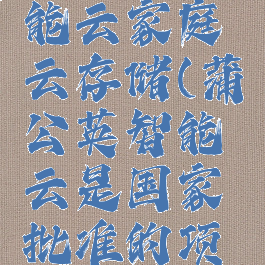 能云家庭
云存储(蒲
公英智能
云是国家
批准的项